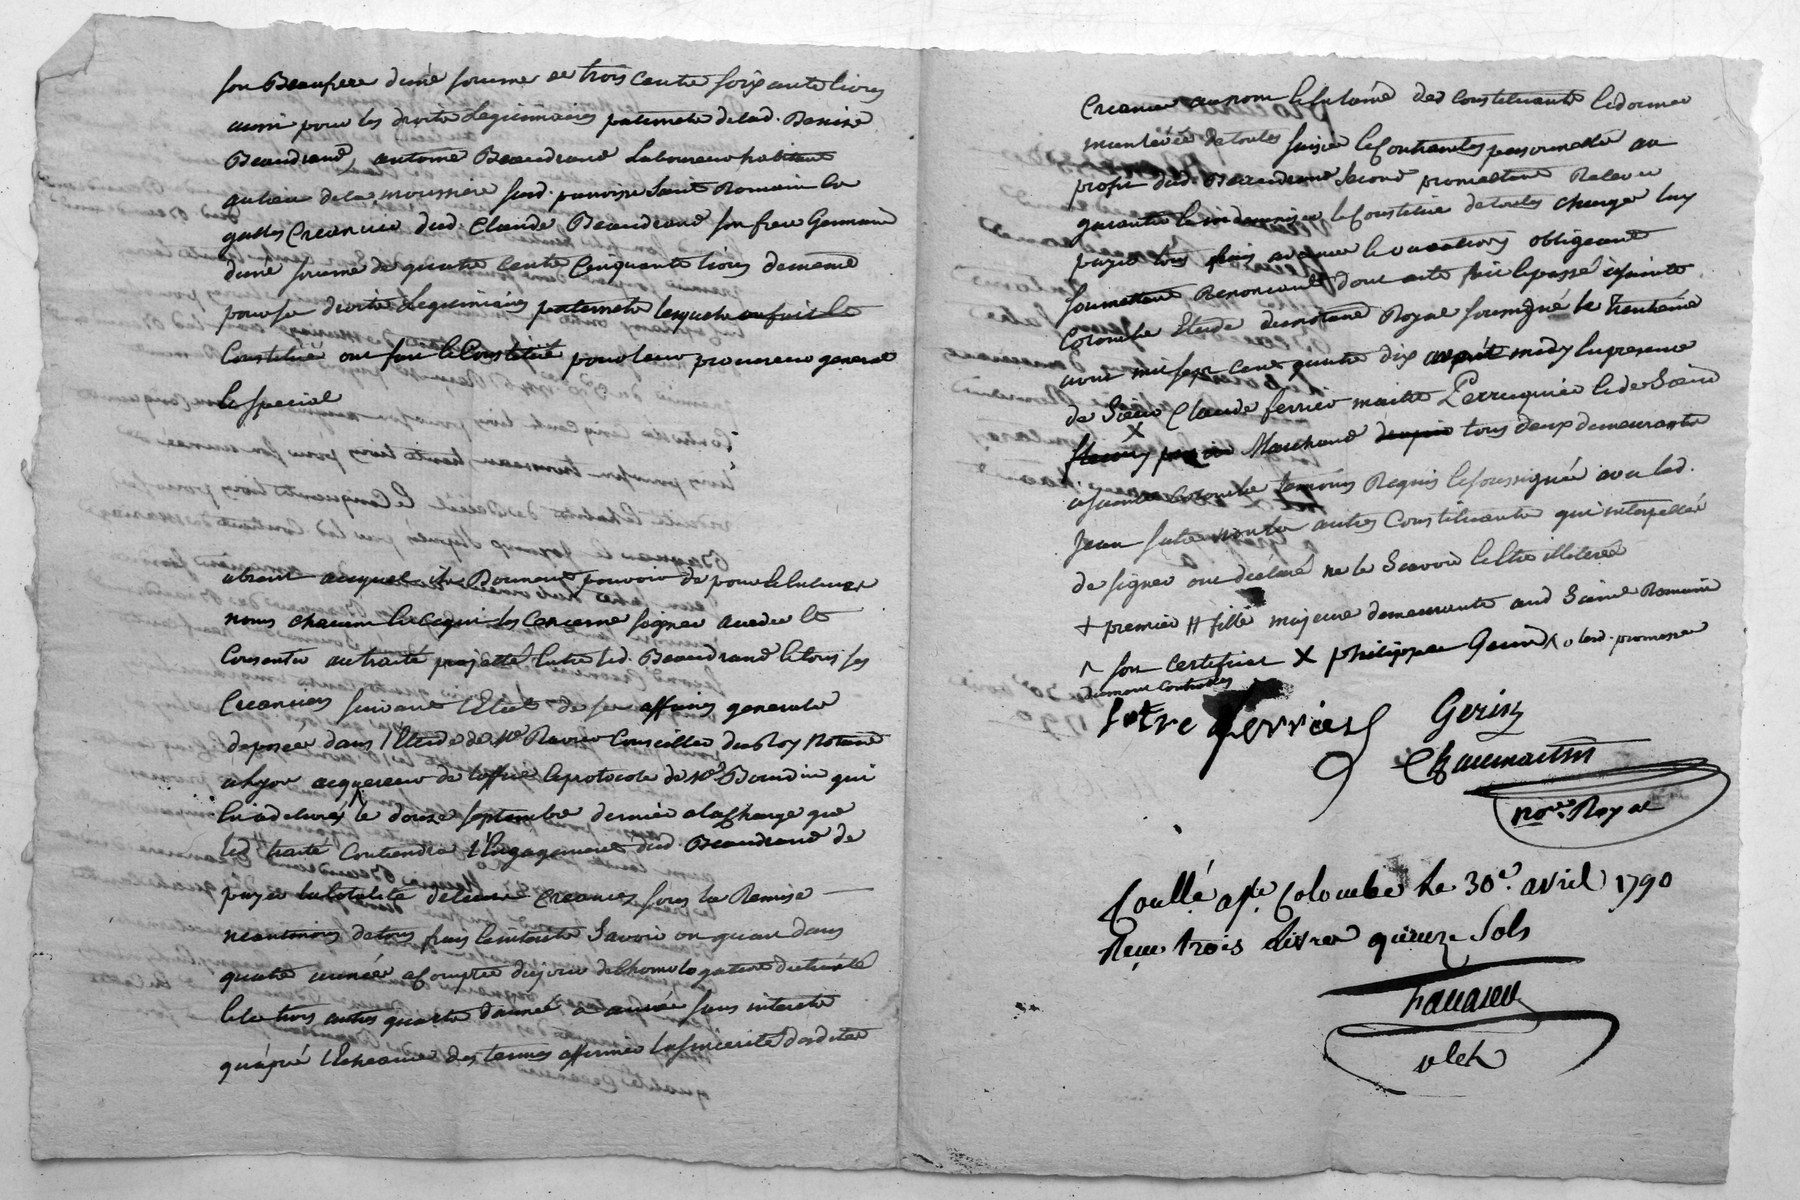 son Beaufrere d'une somme de trois cents soixante livres
aussi pour les droits Legitimaires paternels de lad. Benise
Beaudrand, antoine Beaudrand Laboureur habitant
au lieu de la moussiere susd. parroisse Saint Romain la
galles Creancier dud. Claude Beaudrand son frere Germain
d'une somme de quatre cents Cinquante livres de meme
pour ses droits Legitimaires paternels lesquels
Constitué ont fait & Constitué pour leur procureur general
& special
absent auquel ils Donnent pouvoir de pour & en leurs
noms chacun En ce qui les Concerne signer accede et
Consentir au traité projetté Entre led. Beaudrand & tous ses
Creanciers suivant l'Etat de ses affaires generales
deposée dans l'Etude de Me Ravier Conseiller du Roy Notaire
a Lyon acquereur de l'office & protocole de Me Bourdin qui
l'a delivrés le douze septembre dernier a la Charge que
led traité Contiendra l'Engagement dud. Beaudrand de
payer la totalité de leurs Creances sous la Remise
neantmoins de tous frais & interets Savoir un quart dans
quatre année a Compter du jour de l'homologation du traité
& les trois autres quarts d'année a année sans interets
qu'apré l'Echeance des termes affirmer la sincerité desdites
Creances au nom & en l'ame des Constituants & donner
mainlevée de toutes saisies & Contraintes personnelles au
profit dud. Beaudrand Second promettant Relever
garantir & indemniser le Constitué de toutes charges luy
payer tous frais avance & vacations obligeant
soumettant Renonceant dont acte fait & passé a sainte
Colombe Etude du notaire Royal soussigné le Trentieme
avril mil sept cent quatre dix après midy En presence
de Sieur Claude ferrier maitre Perruquier & de Sieur
X Marchand tous deux demeurants
a sainte Colombe temoins Requis & soussignée avec led.
Jean futre non les autres Constituants qui interpellée
de signer ont declaré ne le Scavoir & Etre illiterée
+ premier # fille majeure demeurante aud Saint Romain
son certifier X philippe Gerin lesd. promesse
diement Controllés
futre ferrier Gerin
Chaumartin
nore. Royal
Conllé a ste. Colombe Le 30e. avril 1790
Reçu trois Livres quinze Sols